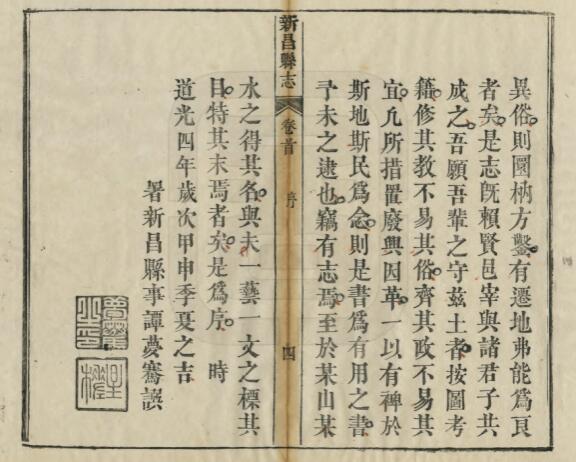 異俗則圜枘方鑿有遷地弗能爲良
者矣是志旣賴賢邑宰與諸君子共
成之吾願吾輩之守兹土者按圖考
籍修其教不易其俗齊其政不易其
宜凡所措置廢興因革一以有裨於
斯地斯民爲念則是書爲有用之書
予未之逮也竊有志焉至於某山某
新昌縣志 卷首 序 四
水之得其名與夫一藝一文之標其
目特其末焉者矣是爲序 時
道光四年歲次甲申季夏之吉
署新昌縣事譚夢騫譔